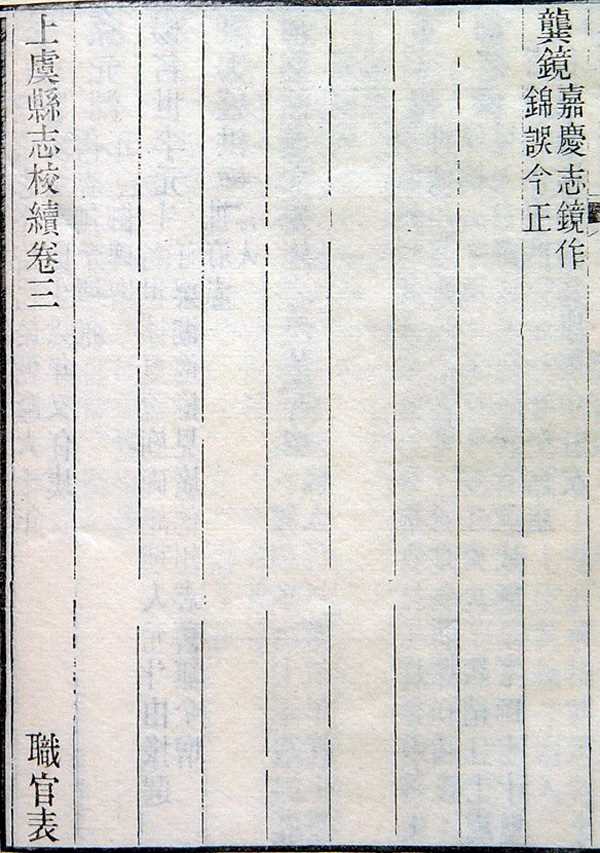 龔鏡嘉慶志鏡作
錦誤今正
上虞縣志校續卷三
職官表